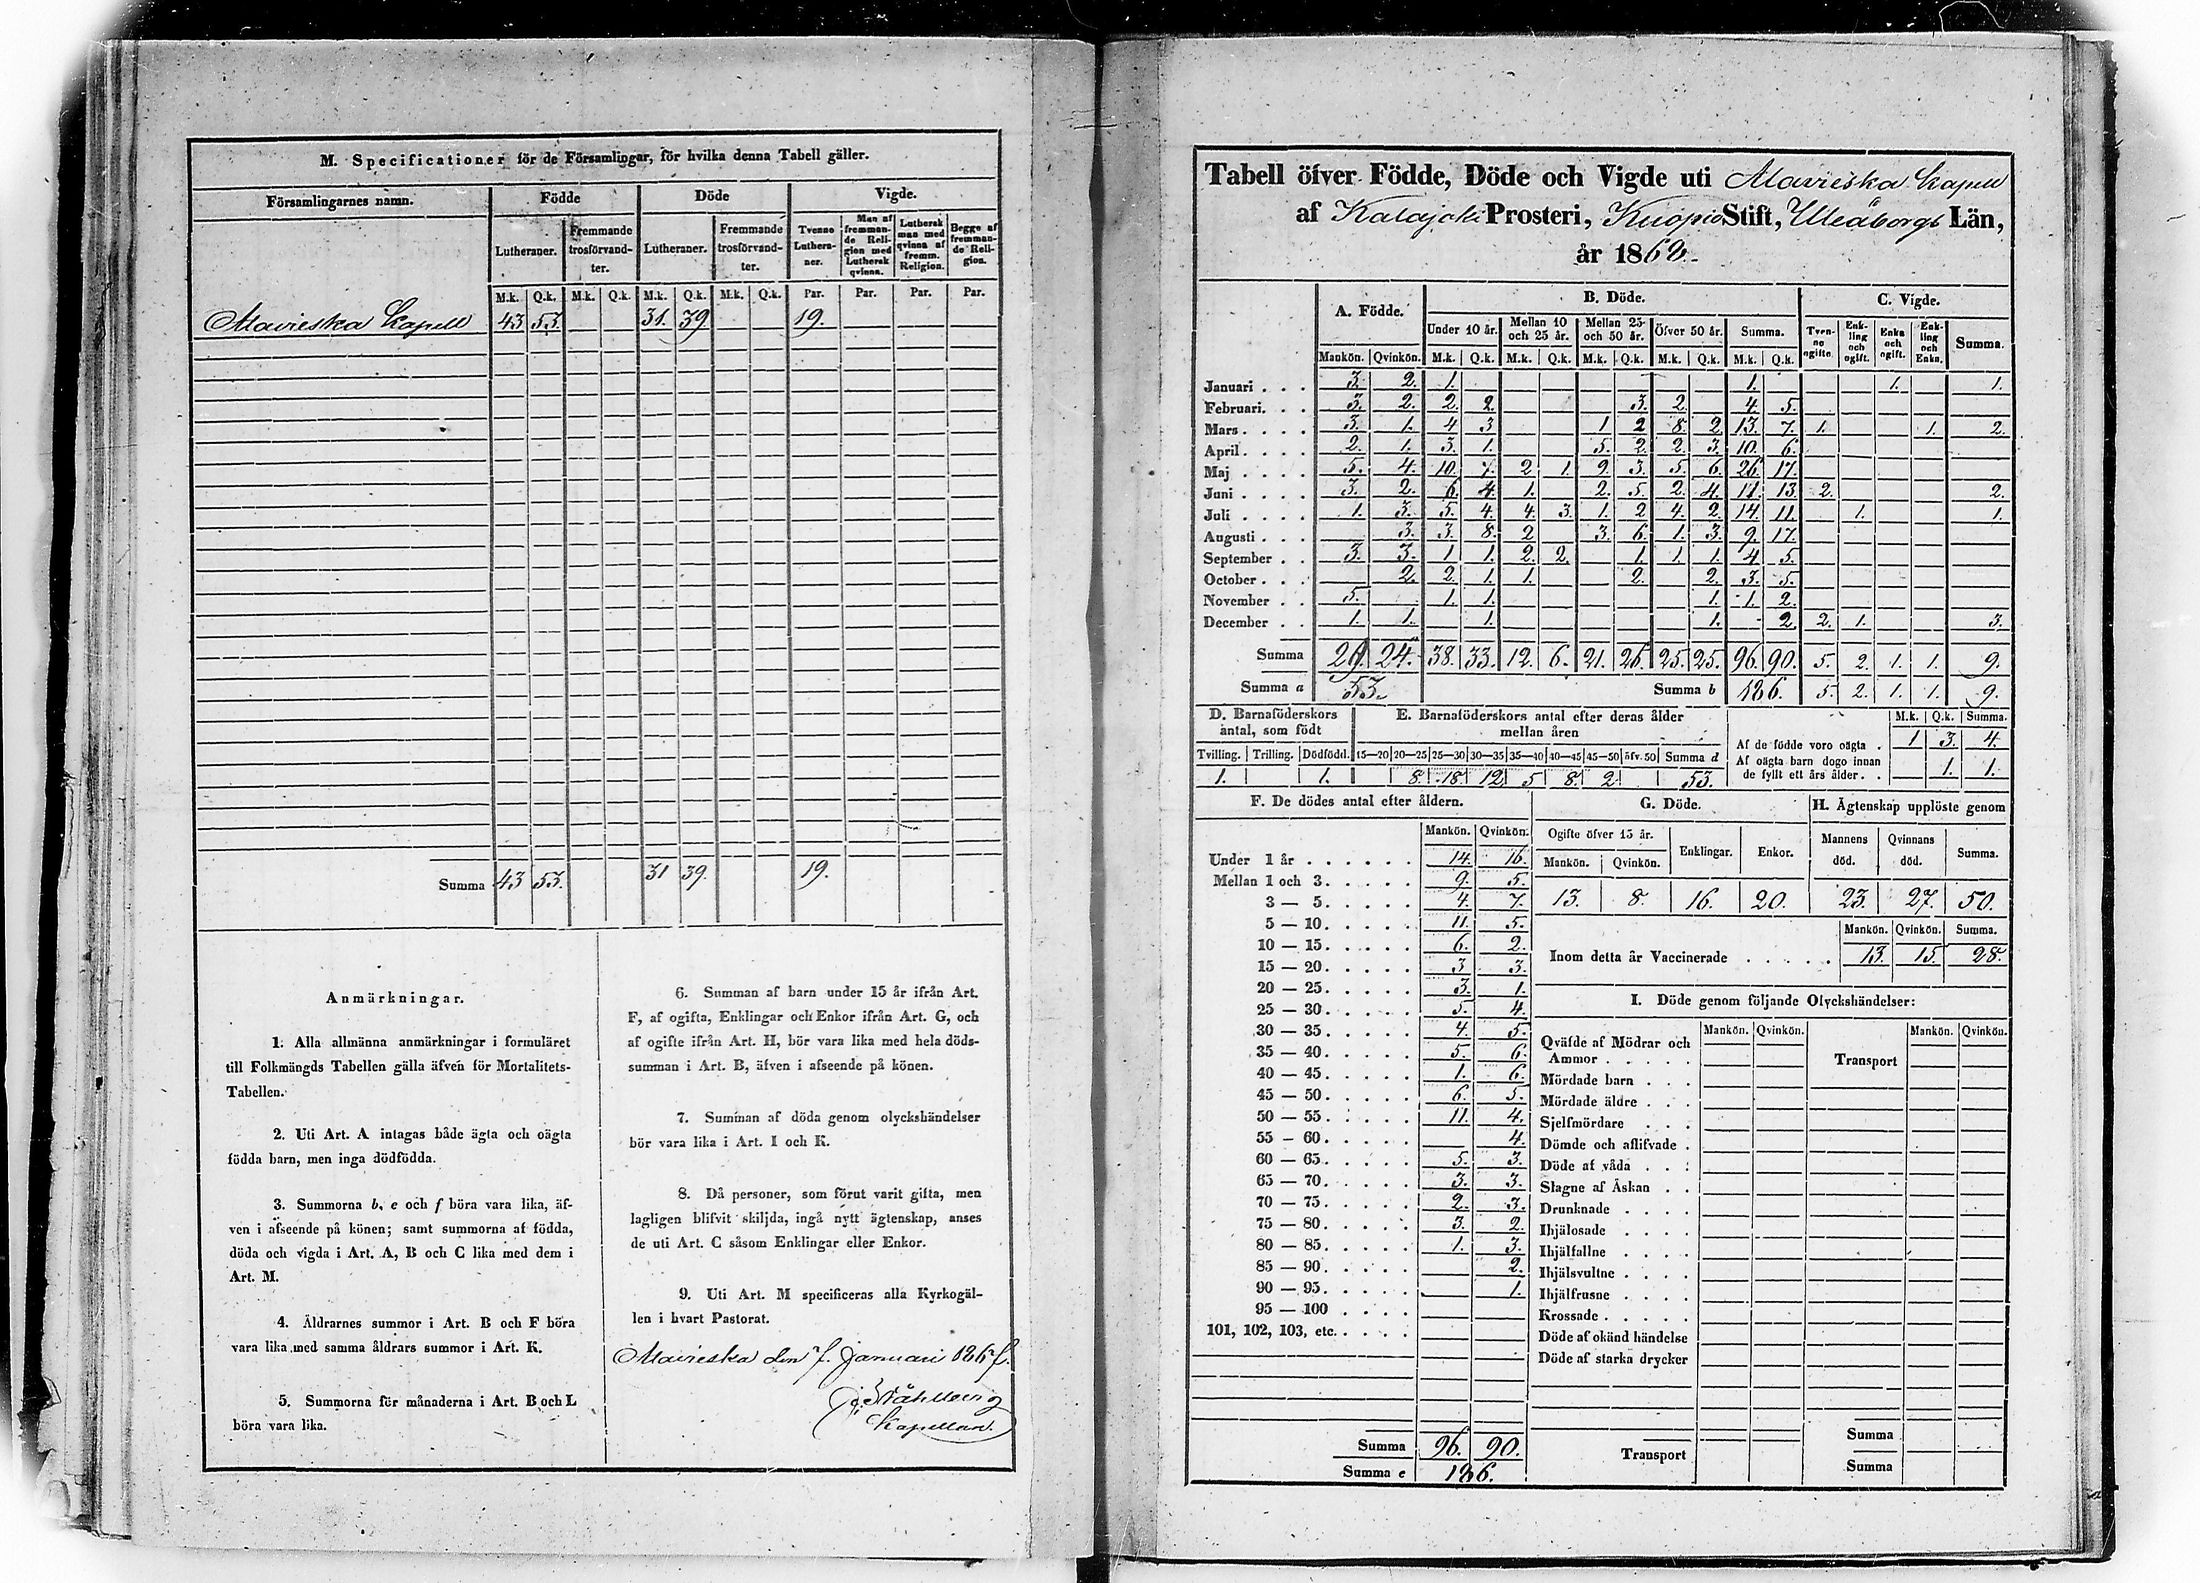 M. Specificationer för de Församlingar, för hvilka denna Tabell gäller.
Församlingarnes namn. Födde Döde Vigde.
Lutheraner. Fremmande trosförvandter. Lutheraner. Fremmande trosförvandter. Tvenne Lutheraner. Man af fremmande Religion med Luthersk qvinna. Luthersk man med qvinna af fremm. Religion. Begge af fremmande Religion.
M.k. Q.k. M.k. Q.k. M.k. Q.k. M.k. Q.k. Par. Par. Par. Par.
Mavieska Kapell 43 53. 31. 39. 19.
Summa 43 53. 31 39. 19.
Anmärkningar.
1. Alla allmänna anmärkningar i formuläret
till Folkmängds Tabellen gälla äfven för Mortalitets-
Tabellen.
2. Uti Art. A intagas både ägta och oägta
födda barn, men inga dödfödda.
3. Summorna b, e och f böra vara lika, äf-
ven i afseende på könen; samt summorna af födda,
döda och vigda i Art. A, B och C lika med dem i
Art. M.
4. Åldrarnes summor i Art. B och F böra
vara lika med samma åldrars summor i Art. K.
5. Summorna för månaderna i Art. B och L
böra vara lika.
6. Summan af barn under 15 år ifrån Art.
F, af ogifta, Enklingar och Enkor ifrån Art. G, och
af ogifte ifrån Art. H, bör vara lika med hela döds-
summan i Art. B, äfven i afseende på könen.
7. Summan af döda genom olyckshändelser
bör vara lika i Art. I och K.
8. Då personer, som förut varit gifta, men
lagligen blifvit skiljda, ingå nytt ägtenskap, anses
de uti Art. C såsom Enklingar eller Enkor.
9. Uti Art. M specificeras alla Kyrkogäl-
len i hvart Pastorat.
Mavieska den 7. Januari
Ståhlberg
Kapellan.
Tabell öfver Födde, Döde och Vigde uti Mavieska Kapell
af Kalajoki Prosteri, Kuopio Stift, Uleåborgs Län,
år 1868.
A. Födde. B. Döde. C. Vigde.
Under 10 år. Mellan 10 och 25 år. Mellan 25 och 50 år. Öfver 50 år. Summa. Tvenne ogifte. Enkling och ogift. Enka och ogift. Enkling och Enka. Summa.
Mankön. Qvinkön. M.k. Q.k. M.k. Q.k. M.k. Q.k. M.k. Q.k. M.k. Q.k.
Januari . . . 3. 2. 1. 1. 1. 1.
Februari. . . 3. 2. 2. 2. 3. 2. 4. 5.
Mars . . . . 3. 1. 4 3 1 2 8. 2. 13. 7. 1. 1. 2.
April . . . . 2. 1. 3. 1. 5. 2. 2. 3. 10. 6.
Maj . . . . 5. 4. 10. 7. 2 1. 9. 3. 5. 6. 26. 17.
Juni . . . . 3. 2. 6. 4. 1. 2. 5. 2. 4. 11. 13. 2. 2.
Juli . . . . 1. 3. 5. 4. 4. 3. 1. 2 4. 2. 14. 11. 1. 1.
Augusti . . . 3. 3. 8. 2 3. 6. 1. 3. 9. 17.
September . . 3. 3. 1 1. 2. 2. 1. 1. 1. 4 5.
October . . . 2. 2. 1. 1. 2. 2. 3. 5.
November . . 5. 1. 1. 1. 1. 2.
December . . 1. 1. 1. 1. - 2. 2. 1. 3.
Summa 29. 24. 38. 33. 12. 6. 21. 26. 25. 25. 96. 90. 5. 2. 1. 1. 9.
Summa a 53. Summa b 186. 5. 2. 1. 1. 9.
D. Barnaföderskors antal, som födt
Tvilling. Trilling. Dödfödd.
1. 1.
E. Barnaföderskors antal efter deras ålder mellan åren
15—20 20—25 25—30 30—35 35—40 40—45 45—50 öfv. 50 Summa d
8. 18. 12. 5 8. 2. 53.
M.k. Q.k. Summa.
Af de födde voro oägta . 1 3. 4.
Af oägta barn dogo innan
de fyllt ett års ålder. . 1. 1.
F. De dödes antal efter åldern.
Mankön. Qvinkön.
Under 1 år . . . . . . 14. 16.
Mellan 1 och 3. . . . . 9. 5.
3 — 5. . . . . 4. 7.
5 — 10. . . . . 11. 5.
10 — 15. . . . . 6. 2.
15 — 20. . . . . 3 3.
20 — 25. . . . . 3. 1.
25 — 30. . . . . 5. 4.
30 — 35. . . . . 4. 5.
35 — 40. . . . . 5. 6.
40 — 45. . . . . 1. 6.
45 — 50. . . . . 6. 5.
50 — 55. . . . . 11. 4.
55 — 60. . . . . 4.
60 — 65. . . . . 5. 3.
65 — 70. . . . . 3. 3.
70 — 75. . . . . 2. 3.
75 — 80. . . . . 3. 2.
80 — 85. . . . . 1. 3.
85 — 90. . . . . 2.
90 — 95. . . . . 1.
95 — 100 . . . .
101, 102, 103, etc. . . . .
Summa 96. 90.
Summa e 186.
G. Döde.
Ogifte öfver 15 år. Enklingar. Enkor.
Mankön. Qvinkön.
13. 8. 16. 20.
H. Ägtenskap upplöste genom
Mannens död. Qvinnans död. Summa.
23. 27. 50.
Mankön. Qvinkön. Summa.
Inom detta år Vaccinerade . . . . . 13. 15. 28.
I. Döde genom följande Olyckshändelser:
Mankön. Qvinkön. Mankön. Qvinkön.
Qväfde af Mödrar och
Ammor . . . . . Transport
Mördade barn . . .
Mördade äldre . . .
Sjelfmördare . . .
Dömde och aflifvade .
Döde af våda . . .
Slagne af Åskan . .
Drunknade . . . .
Ihjälosade . . . .
Ihjälfallne . . . .
Ihjälsvultne . . . .
Ihjälfrusne . . . .
Krossade . . . . .
Döde af okänd händelse
Döde af starka drycker
Transport
Summa
Summa